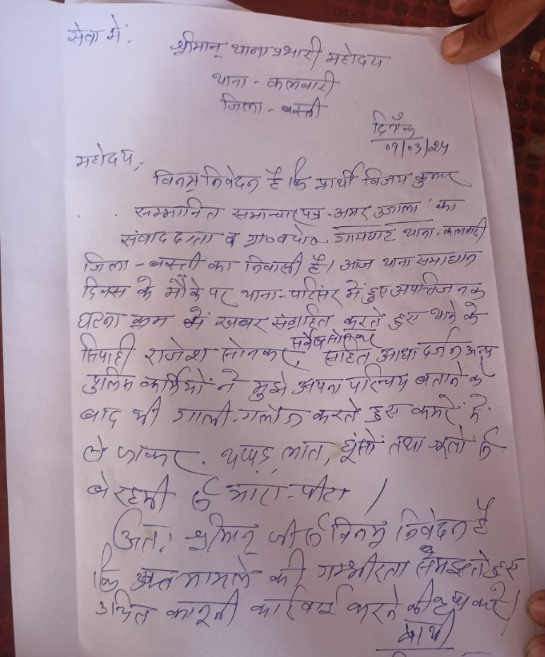 सेवा में,
श्रीमान् थाना प्रभारी महोदय
थाना - कलवारी
जिला - बस्ती
दिनाँक
09/03/24
महोदय,
विनम्र निवेदन है कि प्रार्थी विजय कुमार
सम्मानित समाचार पत्र - अमर उजाला का
संवाददाता व ग्रा० व पो० थाना - कलवारी
जिला - बस्ती का निवासी है। आज थाना समाधान
दिवस के मौके पर थाना - परिसर में हुए
घटना क्रम में खबर संग्रहित करते हुए थाने के
सिपाही राजेश सोनकर, सहित आधा दर्जन अन्य
पुलिस कर्मियों ने मुझे अपना परिचय बताने के
बाद भी गाली-गलौज करते हुए कमरे में
ले जाकर थप्पड़, लात, घूंसों तथा से
बेरहमी से मारा-पीटा।
अतः श्रीमान् जी से विनम्र निवेदन है
कि उक्त मामले की गम्भीरता समझते हुए
उचित कानूनी कार्रवाई करने की कृपा करें।
प्रार्थी